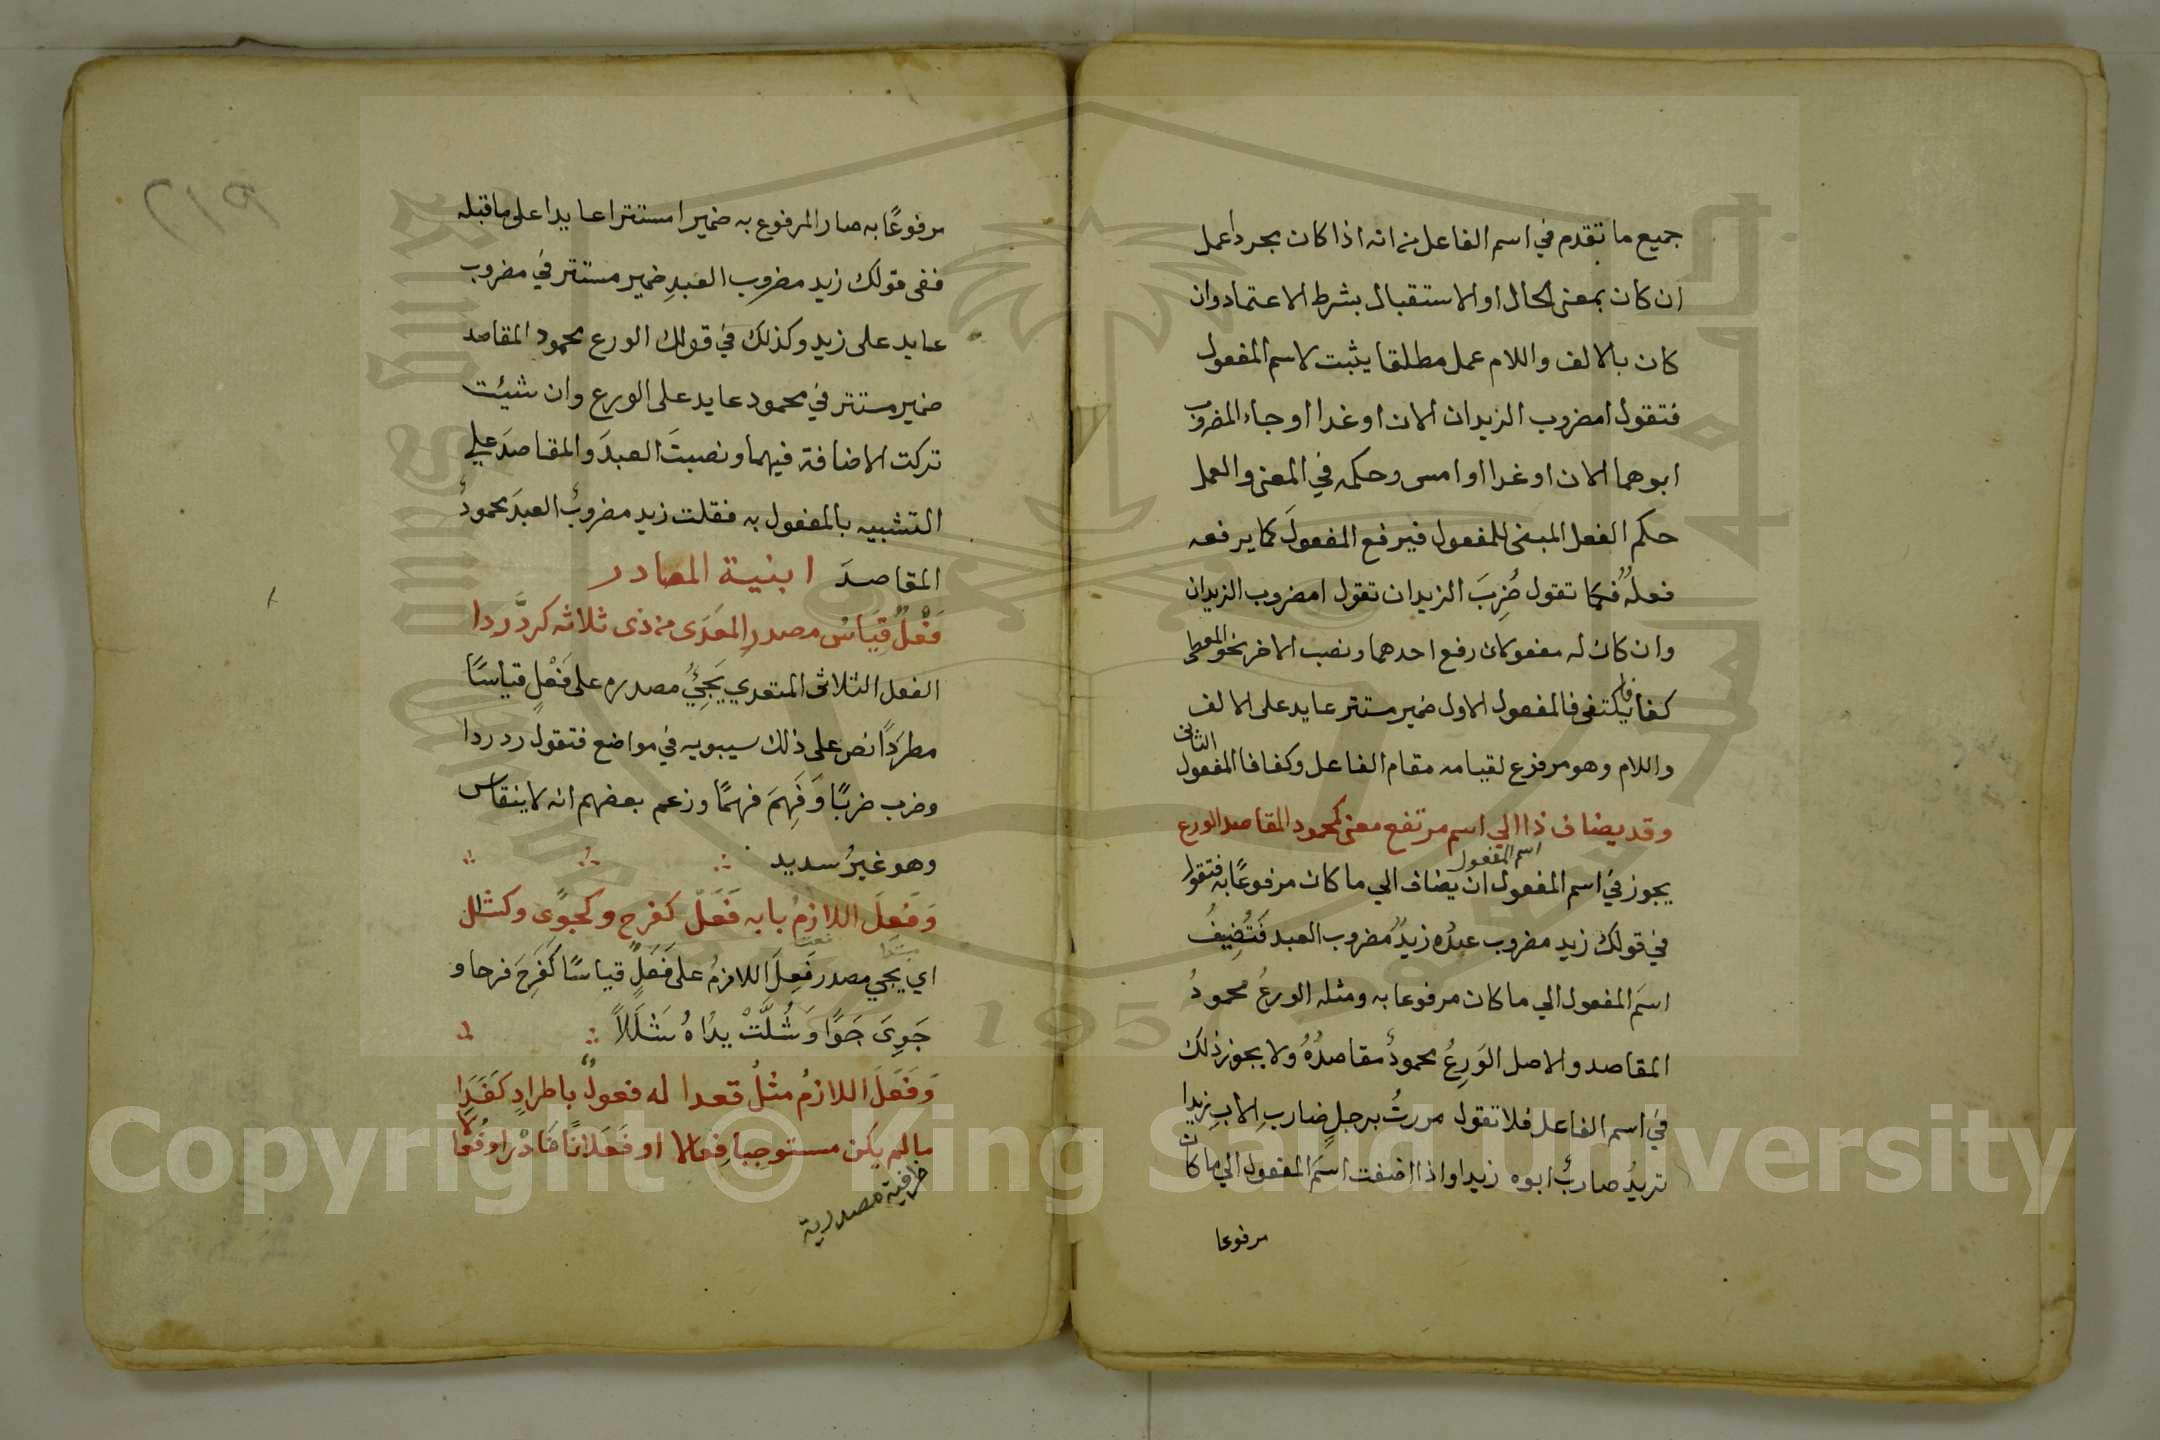 جميع ما تقدم في اسم الفاعل من انه اذا كان مجردا عمل
ان كان بمعنى الحال او الاستقبال بشرط الاعتماد وان
كان بالالف واللام عمل مطلقا يثبت لاسم المفعول
فتقول امضروب الزيدان الان او غدا او جاء المضروب
ابوهما الان او غدا او امس وحكمه في المعنى والعمل
حكم الفعل المبني للمفعول فيرفع المفعولَ كما يرفعه
فعلُه فكما تقول ضُرِبَ الزيدان تقول امضروب الزيدان
وان كان له مفعولان رفع احدهما ونصب الاخر نحو المعطى
كفافا يكتفى فالمفعول الاول ضمير مستتر عايد على الالف
واللام وهو مرفوع لقيامه مقام الفاعل وكفافا المفعول الثانى
وقد يضاف ذا الي اسم مرتفع معنى كمحمود المقاصد الورع
يجوز في اسم المفعول ان يضاف الي ما كان مرفوعًا به فتقول
اسم المفعول
في قولك زيد مضروب عبدُه زيدٌ مضروب العبد فَتُضِيفُ
اسمَ المفعول الي ما كان مرفوعا به ومثله الورعُ محمودُ
المقاصد والاصل الوَرِعُ محمودٌ مقاصدُهُ ولا يجوز ذلك
في اسم الفاعل فلا تقول مررتُ برجلٍ ضاربِ الابِ زيدا
تريدُ ضاربٌ ابوه زيدا واذا اضفت اسمَ المفعول الي ما كان
مرفوعا
٢١٩
مرفوعًا به صار المرفوع به ضميرا مستترا عايدا على ما قبله
ففى قولك زيد مضروب العبدِ ضمير مستتر في مضروب
عايد على زيد وكذلك في قولك الورع محمود المقاصد
ضمير مستتر في محمود عايد على الورع وان شيئت
تركت الاضافة فيهما ونصبتَ العبدَ والمقاصدَ علي
التشبيه بالمفعول به فقلت زيد مضروبٌ العبدَ محمودٌ
المقاصدَ ابنية المصادر
فَعْلٌ قِيَاسُ مصدرِ المعَدَى من ذى ثلاثه كردَّ ردا
الفعل الثلاثى المتعدي يَجِيُّ مصدره على فَعْلٍ قياسًا
مطردًا نص على ذلك سيبويه في مواضع فتقول رد ردا
وضرب ضربًا وَفَهِمَ فهمًا وزعم بعضهم انه لا ينقاس
وهو غيرُ سديد
وَفَعِلَ اللازمُ بابه فَعَلْ كفرح وكجوًى وكشلل
اي يجي مصدر فَعِلَ اللازمُ على فَعَلٍ قياسًا كَفَرِحَ فرحا و
جَوِىَ جَوًا وَشُلَّتْ يدُاهُ شَلَلًا
وَفَعَلَ اللازمُ مثلُ قعدا له فعولٌ باطرادٍ كَغَدَا
ما لم يكن مستوجبا فعالا او فَعَلانًا فَادْرِ او فُعَالا
ظرفية مصدرية
Copyright © King Saud University
1957